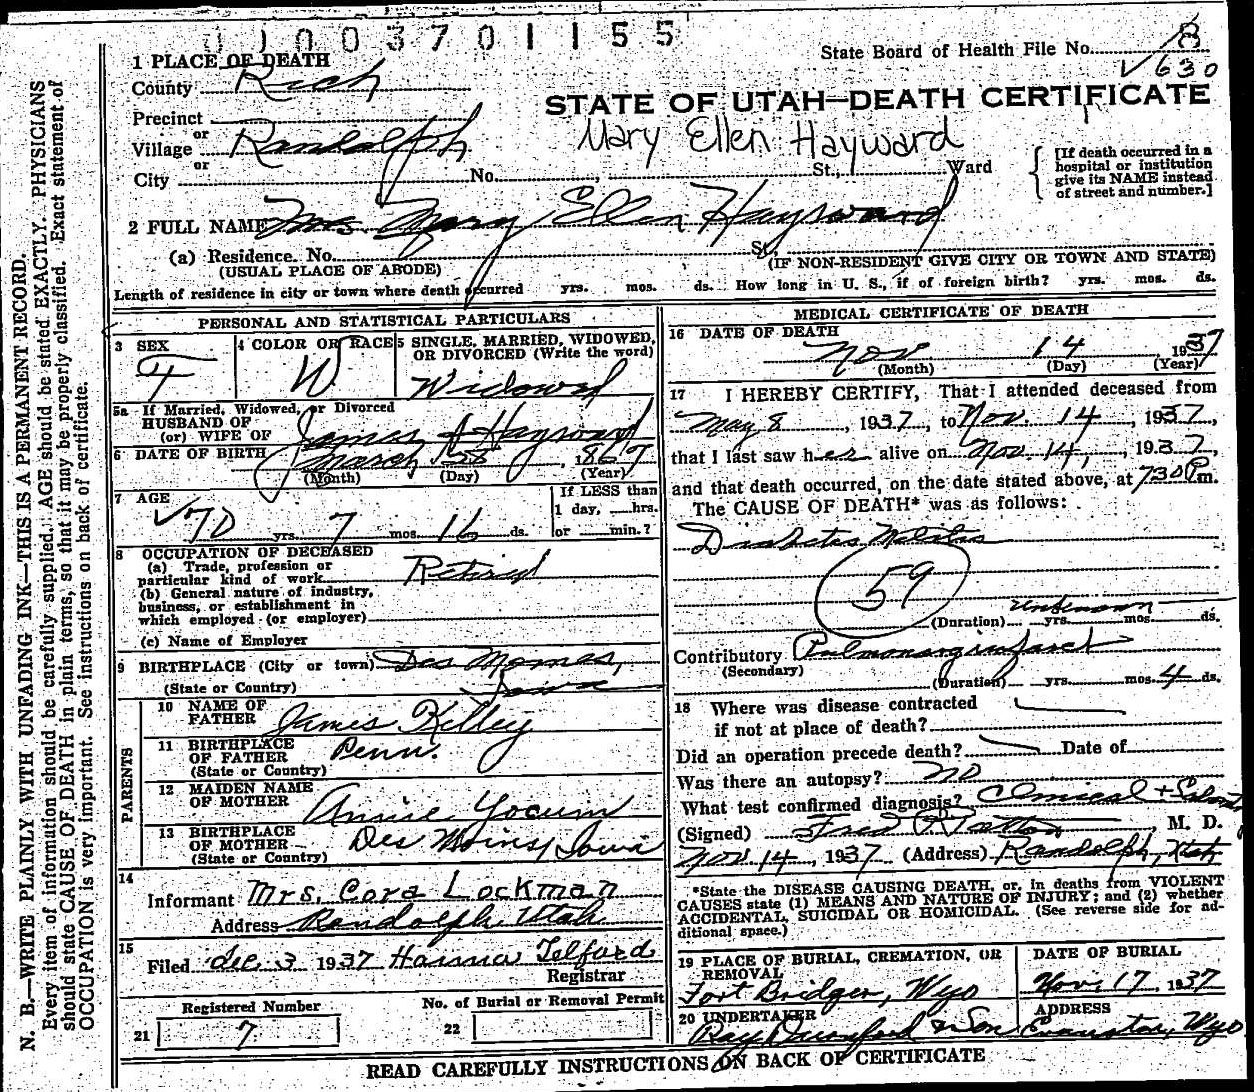 0 1 0 0 3 7 0 1 1 5 5
State Board of Health File No. 18
V 630
1 PLACE OF DEATH
County Rich
STATE OF UTAH—DEATH CERTIFICATE
Precinct
or
Village Randolph
Mary Ellen Hayward
or
City No. , St., Ward
[If death occurred in a
hospital or institution
give its NAME instead
of street and number.]
2 FULL NAME Mrs. Mary Ellen Hayward
(a) Residence. No. St.
(USUAL PLACE OF ABODE)
(IF NON-RESIDENT GIVE CITY OR TOWN AND STATE)
Length of residence in city or town where death occurred yrs. mos. ds. How long in U. S., if of foreign birth? yrs. mos. ds.
PERSONAL AND STATISTICAL PARTICULARS
3 SEX
F
4 COLOR OR RACE
W
5 SINGLE, MARRIED, WIDOWED,
OR DIVORCED (Write the word)
Widowed
5a If Married, Widowed, or Divorced
HUSBAND OF
(or) WIFE OF James A Hayward
6 DATE OF BIRTH March 28, 1867
(Month) (Day) (Year)
7 AGE
70 yrs. 7 mos. 16 ds.
If LESS than
1 day, hrs.
or min.?
8 OCCUPATION OF DECEASED
(a) Trade, profession or
particular kind of work Retired
(b) General nature of industry,
business, or establishment in
which employed (or employer)
(c) Name of Employer
9 BIRTHPLACE (City or town) Des Moines,
(State or Country) Iowa
PARENTS
10 NAME OF
FATHER James Kelley
11 BIRTHPLACE
OF FATHER Penn.
(State or Country)
12 MAIDEN NAME
OF MOTHER Annie Yocum
13 BIRTHPLACE
OF MOTHER Des Moins, Iowa
(State or Country)
14
Informant Mrs. Cora Lockman
Address Randolph, Utah
15
Filed Dec 3 1937 Telford
Registrar
Registered Number
21 7
No. of Burial or Removal Permit
22
MEDICAL CERTIFICATE OF DEATH
16 DATE OF DEATH
Nov 14 1937
(Month) (Day) (Year)
17 I HEREBY CERTIFY, That I attended deceased from
May 8, 1937, to Nov. 14, 1937,
that I last saw her alive on Nov. 14, 1937,
and that death occurred, on the date stated above, at 730 P.m.
The CAUSE OF DEATH* was as follows:
Diabetis Melitis
59
unknown
(Duration) yrs. mos. ds.
Contributory Pulmonary infarct
(Secondary)
(Duration) yrs. mos. 4 ds.
18 Where was disease contracted
if not at place of death?
Did an operation precede death? Date of
Was there an autopsy? no
What test confirmed diagnosis? Clinical +
(Signed) Fred , M. D.
Nov 14, 1937 (Address) Randolph, Utah
*State the DISEASE CAUSING DEATH, or, in deaths from VIOLENT
CAUSES state (1) MEANS AND NATURE OF INJURY; and (2) whether
ACCIDENTAL, SUICIDAL OR HOMICIDAL. (See reverse side for ad-
ditional space.)
19 PLACE OF BURIAL, CREMATION, OR
REMOVAL
Fort Bridger, Wyo
DATE OF BURIAL
Nov. 17, 1937
20 UNDERTAKER
Ray & Son
ADDRESS
Evanston, Wyo
READ CAREFULLY INSTRUCTIONS ON BACK OF CERTIFICATE
N. B.—WRITE PLAINLY WITH UNFADING INK—THIS IS A PERMANENT RECORD.
Every item of information should be carefully supplied. AGE should be stated EXACTLY. PHYSICIANS
should state CAUSE OF DEATH in plain terms, so that it may be properly classified. Exact statement of
OCCUPATION is very important. See instructions on back of certificate.